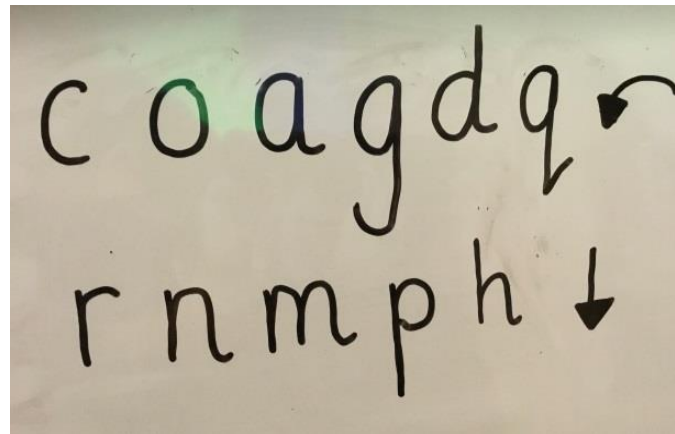 c o a g d q
r n m p h